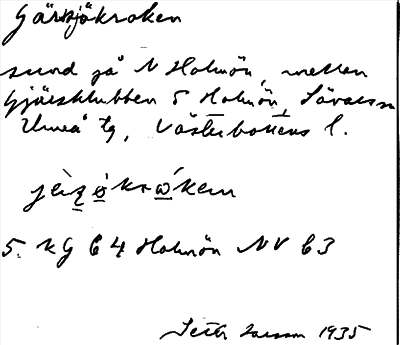 Gärsjökroken
sund på N Holmön, mellan
Gjäesklubben o Holmön, Sävars sn
Umeå tg, Västerbottens l.
kroken
5. KG 64 Holmön NV 63
Seth Larsson 1935